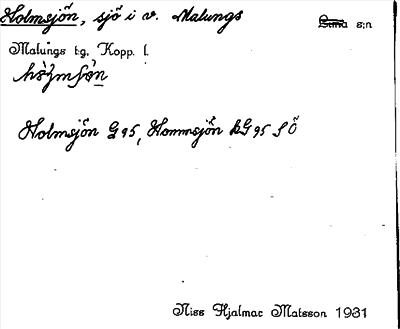 Holmsjön, sjö i v. Malungs Lima s:n
Malungs tg. Kopp. l.
Holmsjön G 95, Hommsjön BG 95 S Ö
Nils Hjalmar Matsson 1931